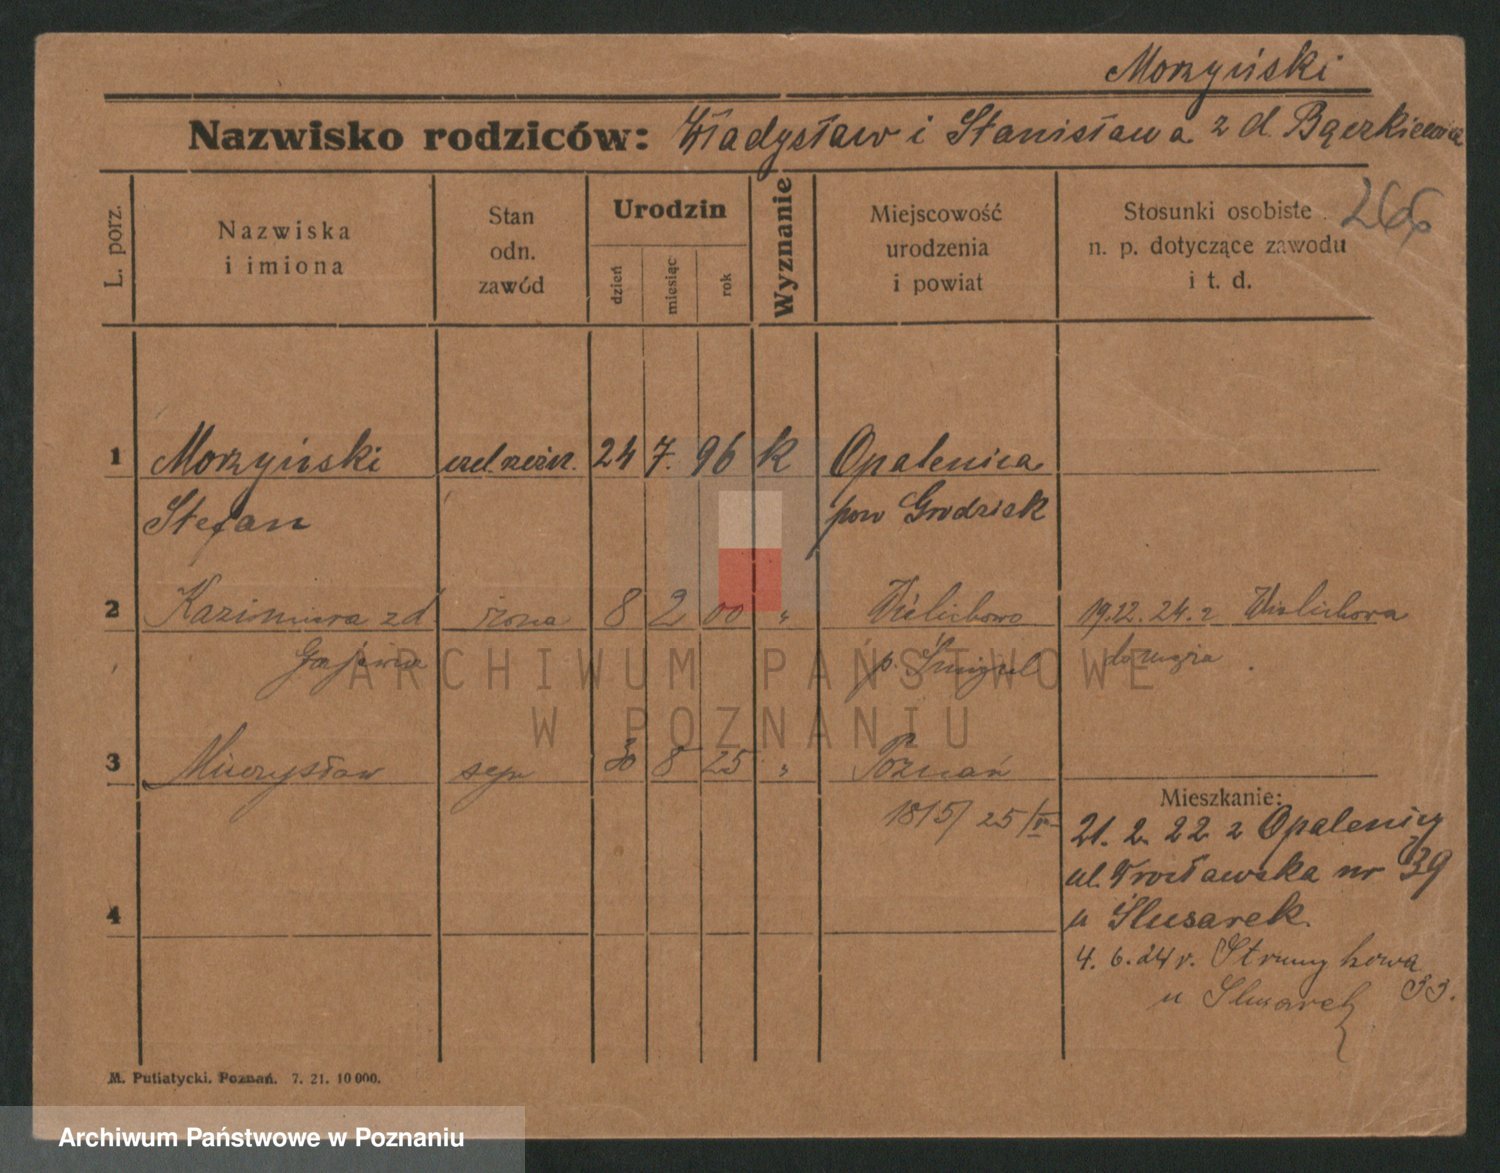 Morzyński
Nazwisko rodziców: Władysław i Stanisława z d. Bączkiewicz
266
L. porz.
Nazwiska
i imiona
Stan
odn.
zawód
Urodzin
dzień
miesiąc
rok
Wyznanie
Miejscowość
urodzenia
i powiat
Stosunki osobiste
n. p. dotyczące zawodu
i t. d.
1 Morzyński czel. rzeźn. 24 7. 96 K Opalenica
Stefan pow Grodzisk
2 Kazimiera z d żona 8 2 00 " Wielichowo 19.12.24. z Wielichowa
Gajewna p. Śmigiel
3 Mieczysław syn 30 8 25 " Poznań
1815/25/
Mieszkanie:
21. 2. 22 z Opalenicy
ul. Wrocławska nr 39
u Ślusarek.
4
4. 6. 24 r. Strumykowa
33.
u Slusarek
ARCHIWUM PAŃSTWOWE
W POZNANIU
M. Putiatycki, Poznań. 7. 21. 10 000.
Archiwum Państwowe w Poznaniu